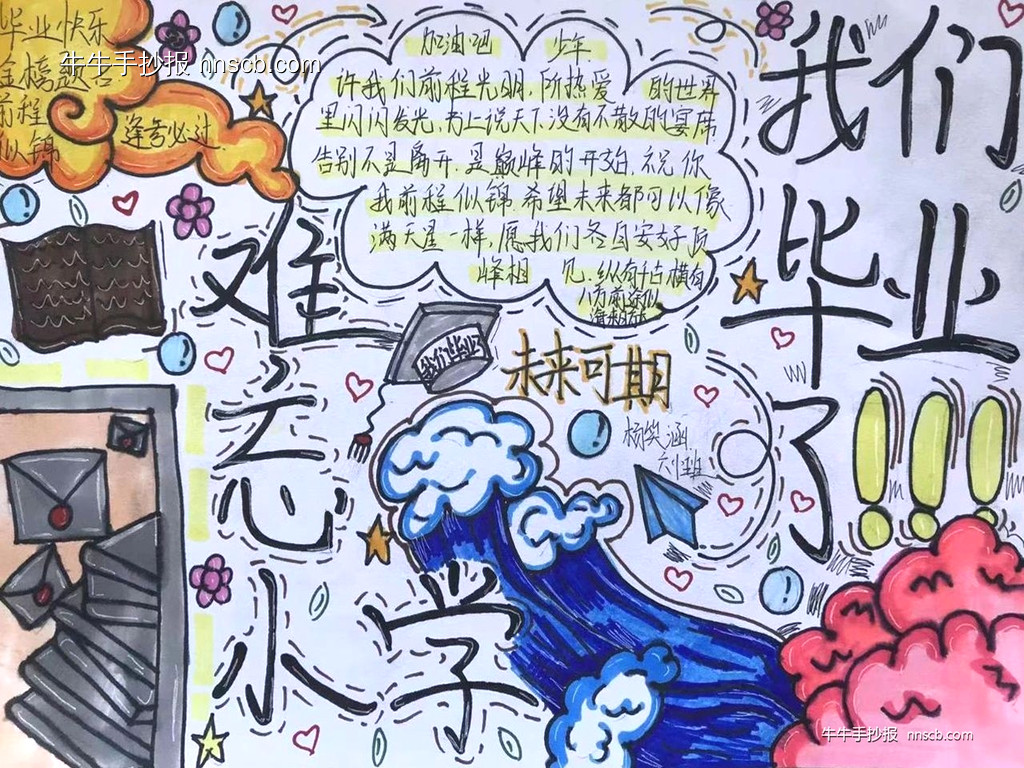 毕业快乐
金榜题名
前程
似锦
逢考必过
牛牛手抄报 nnscb.com
加油吧 少年.
许我们前程光明,所热爱的世界
里闪闪发光,书上说天下没有不散的宴席
告别不是离开,是巅峰的开始,祝你
我前程似锦.希望未来都可以像
满天星一样,愿我们各自安好,顶
峰相见.纵有千古横有
八方前途似
海来日方长
我们
毕业
了!!!
难
忘
小学
我们毕业
未来可期
杨笑涵
牛牛手抄报 nnscb.com